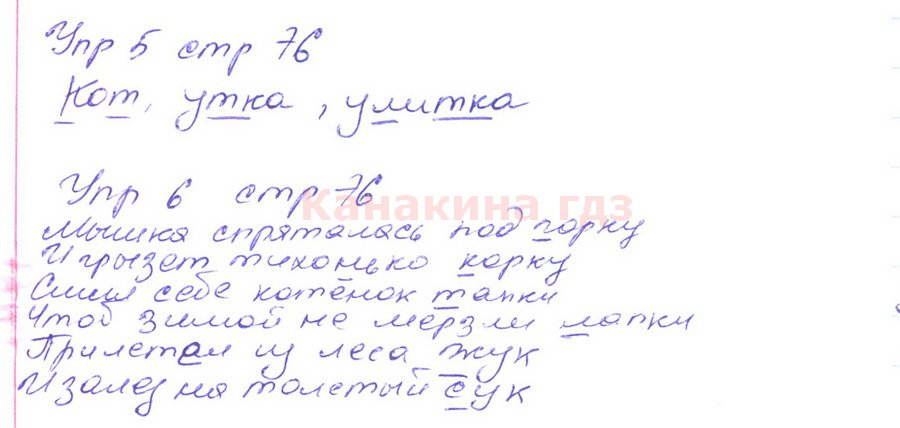 Упр 5 стр 76
Кот, утка, улитка
Упр 6 стр 76
Канакина гдз
Мышка спряталась под горку
И грызет тихонько корку
Сшил себе котёнок тапки
Чтоб зимой не мёрзли лапки
Прилетал из леса жук
И залез на толстый сук